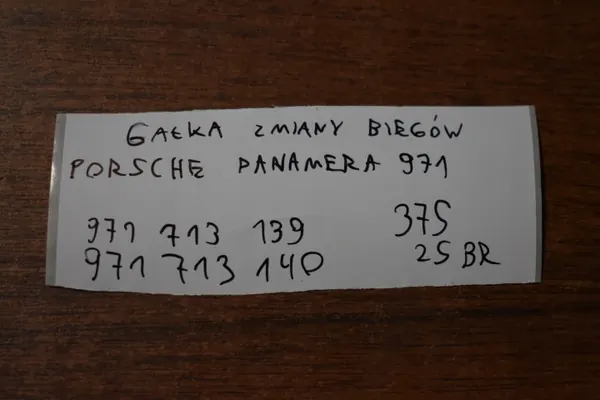 GAŁKA ZMIANY BIEGÓW
PORSCHE PANAMERA 971
971 713 139 375
971 713 140 25 BR